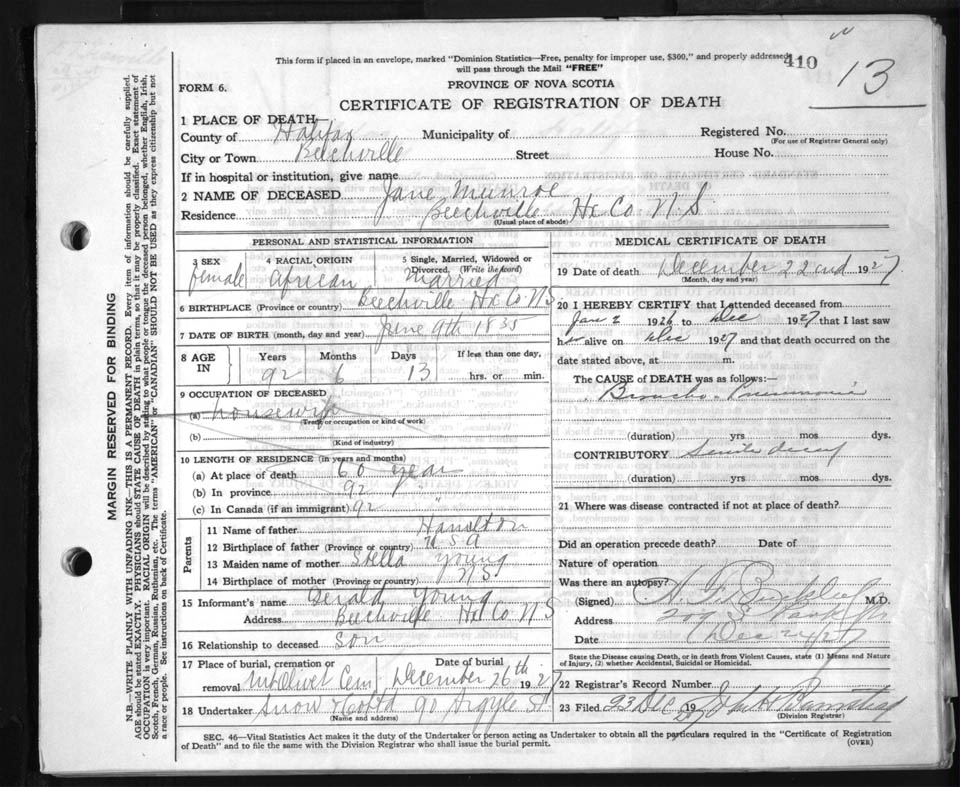 This form if placed in an envelope, marked "Dominion Statistics—Free, penalty for improper use, $300," and properly addressed,
will pass through the Mail "FREE"
410
13
FORM 6.
PROVINCE OF NOVA SCOTIA
CERTIFICATE OF REGISTRATION OF DEATH
1 PLACE OF DEATH—
County of Halifax Municipality of Registered No.
(For use of Registrar General only)
City or Town Beechville Street House No.
If in hospital or institution, give name
2 NAME OF DECEASED Jane Munroe
Residence Beechville Hx Co N.S.
(Usual place of abode)
PERSONAL AND STATISTICAL INFORMATION
3 SEX 4 RACIAL ORIGIN 5 Single, Married, Widowed or
Divorced. (Write the word)
female African Married
6 BIRTHPLACE (Province or country) Beechville Hx Co N S
7 DATE OF BIRTH (month, day and year) June 9th 1835
8 AGE IN Years Months Days If less than one day,
92 6 13 hrs. or min.
9 OCCUPATION OF DECEASED
(a) housewife
(Trade or occupation or kind of work)
(b)
(Kind of industry)
10 LENGTH OF RESIDENCE (in years and months)
(a) At place of death 60 year
(b) In province 92
(c) In Canada (if an immigrant) 92 "
Parents
11 Name of father Hamilton
12 Birthplace of father (Province or country) U S A
13 Maiden name of mother Stella Young
14 Birthplace of mother (Province or country) N S
15 Informant's name Gerald Young
Address Beechville Hx Co N S
16 Relationship to deceased son
17 Place of burial, cremation or Date of burial
removal Mt Olivet Cem December 26th 1927
18 Undertaker Snow 90 Argyle St
(Name and address)
MEDICAL CERTIFICATE OF DEATH
19 Date of death December 22nd 1927
(Month, day and year)
20 I HEREBY CERTIFY that I attended deceased from
Jan 2 1926 to Dec 1927 that I last saw
h alive on Dec 1927 and that death occurred on the
date stated above, at m.
The CAUSE of DEATH was as follows:—
Broncho Pneumonia
(duration) yrs mos dys.
CONTRIBUTORY Senile decay
(duration) yrs. mos. dys.
21 Where was disease contracted if not at place of death?
Did an operation precede death? Date of
Nature of operation
Was there an autopsy?
(Signed) M.D.
Address
Date Dec
State the Disease causing Death, or in death from Violent Causes, state (1) Means and Nature
of Injury, (2) whether Accidental, Suicidal or Homicidal.
22 Registrar's Record Number
23 Filed 23 Dec 19
(Division Registrar)
SEC. 46—Vital Statistics Act makes it the duty of the Undertaker or person acting as Undertaker to obtain all the particulars required in the "Certificate of Registration
of Death" and to file the same with the Division Registrar who shall issue the burial permit.
(OVER)
MARGIN RESERVED FOR BINDING
N.B.—WRITE PLAINLY WITH UNFADING INK—THIS IS A PERMANENT RECORD. Every item of information should be carefully supplied.
AGE should be stated EXACTLY. PHYSICIANS should STATE CAUSE OF DEATH in plain terms, so that it may be properly classified. Exact statement of
OCCUPATION is very important. RACIAL ORIGIN will be described by stating to what people or tongue the deceased person belonged, whether English, Irish,
Scotch, French, German, Russian, Ruthenian, etc. The terms "AMERICAN" or "CANADIAN" SHOULD NOT BE USED as they express citizenship but not
a race or people. See instructions on back of Certificate.